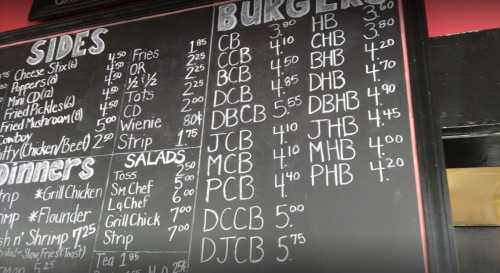 SIDES
Cheese Stix(6) 4.50
Poppers(6) 4.50
Mini CD(12) 4.50
Fried Pickles(6) 4.50
Fried Mushroom(8) 5.00
Cowboy
(Chicken/Beef) 2.50
Fries 1.85
OR 2.25
½ & ½ 2.25
Tots 2.25
CD 2.00
Wienie 80¢
Strip 1.75
SALADS
Toss 2.50
Sm Chef 5.00
Lg Chef 6.00
Grill Chick 7.00
Strip 7.00
Tea 1.85
Dinners
*Grill Chicken
*Flounder
n' Shrimp 7.25
BURGER
CB 3.80
CCB 4.10
BCB 4.50
DCB 4.85
DBCB 5.55
JCB 4.10
MCB 4.10
PCB 4.40
DCCB 5.00
DJCB 5.75
HB 3.60
CHB 3.80
BHB 4.20
DHB 4.70
DBHB 4.90
JHB 4.45
MHB 4.00
PHB 4.20